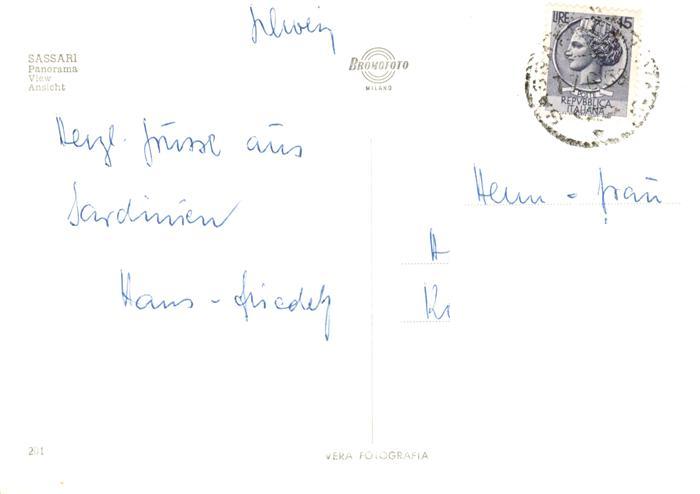 Schweiz
SASSARI
Panorama
View
Ansicht
BROMOFOTO
MILANO
LIRE 15
POSTE
REPVBBLICA
ITALIANA
Herzl. Grüsse aus
Sardinien
Hans - Friedel
Herrn - Frau
H
K
201
VERA FOTOGRAFIA